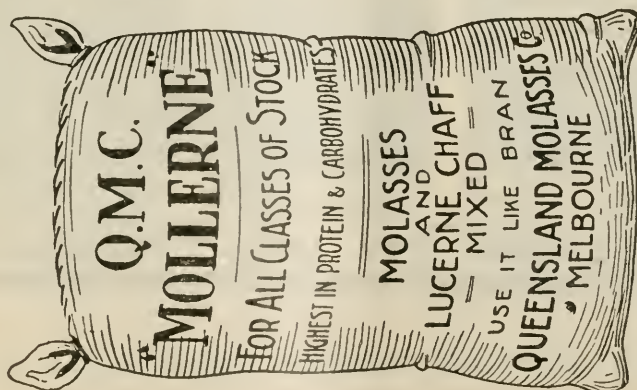 Q.M.C.
"MOLLERNE"
FOR ALL CLASSES OF STOCK
HIGHEST IN PROTEIN & CARBOHYDRATES
MOLASSES
AND
LUCERNE CHAFF
MIXED
USE IT LIKE BRAN
QUEENSLAND MOLASSES Co
MELBOURNE